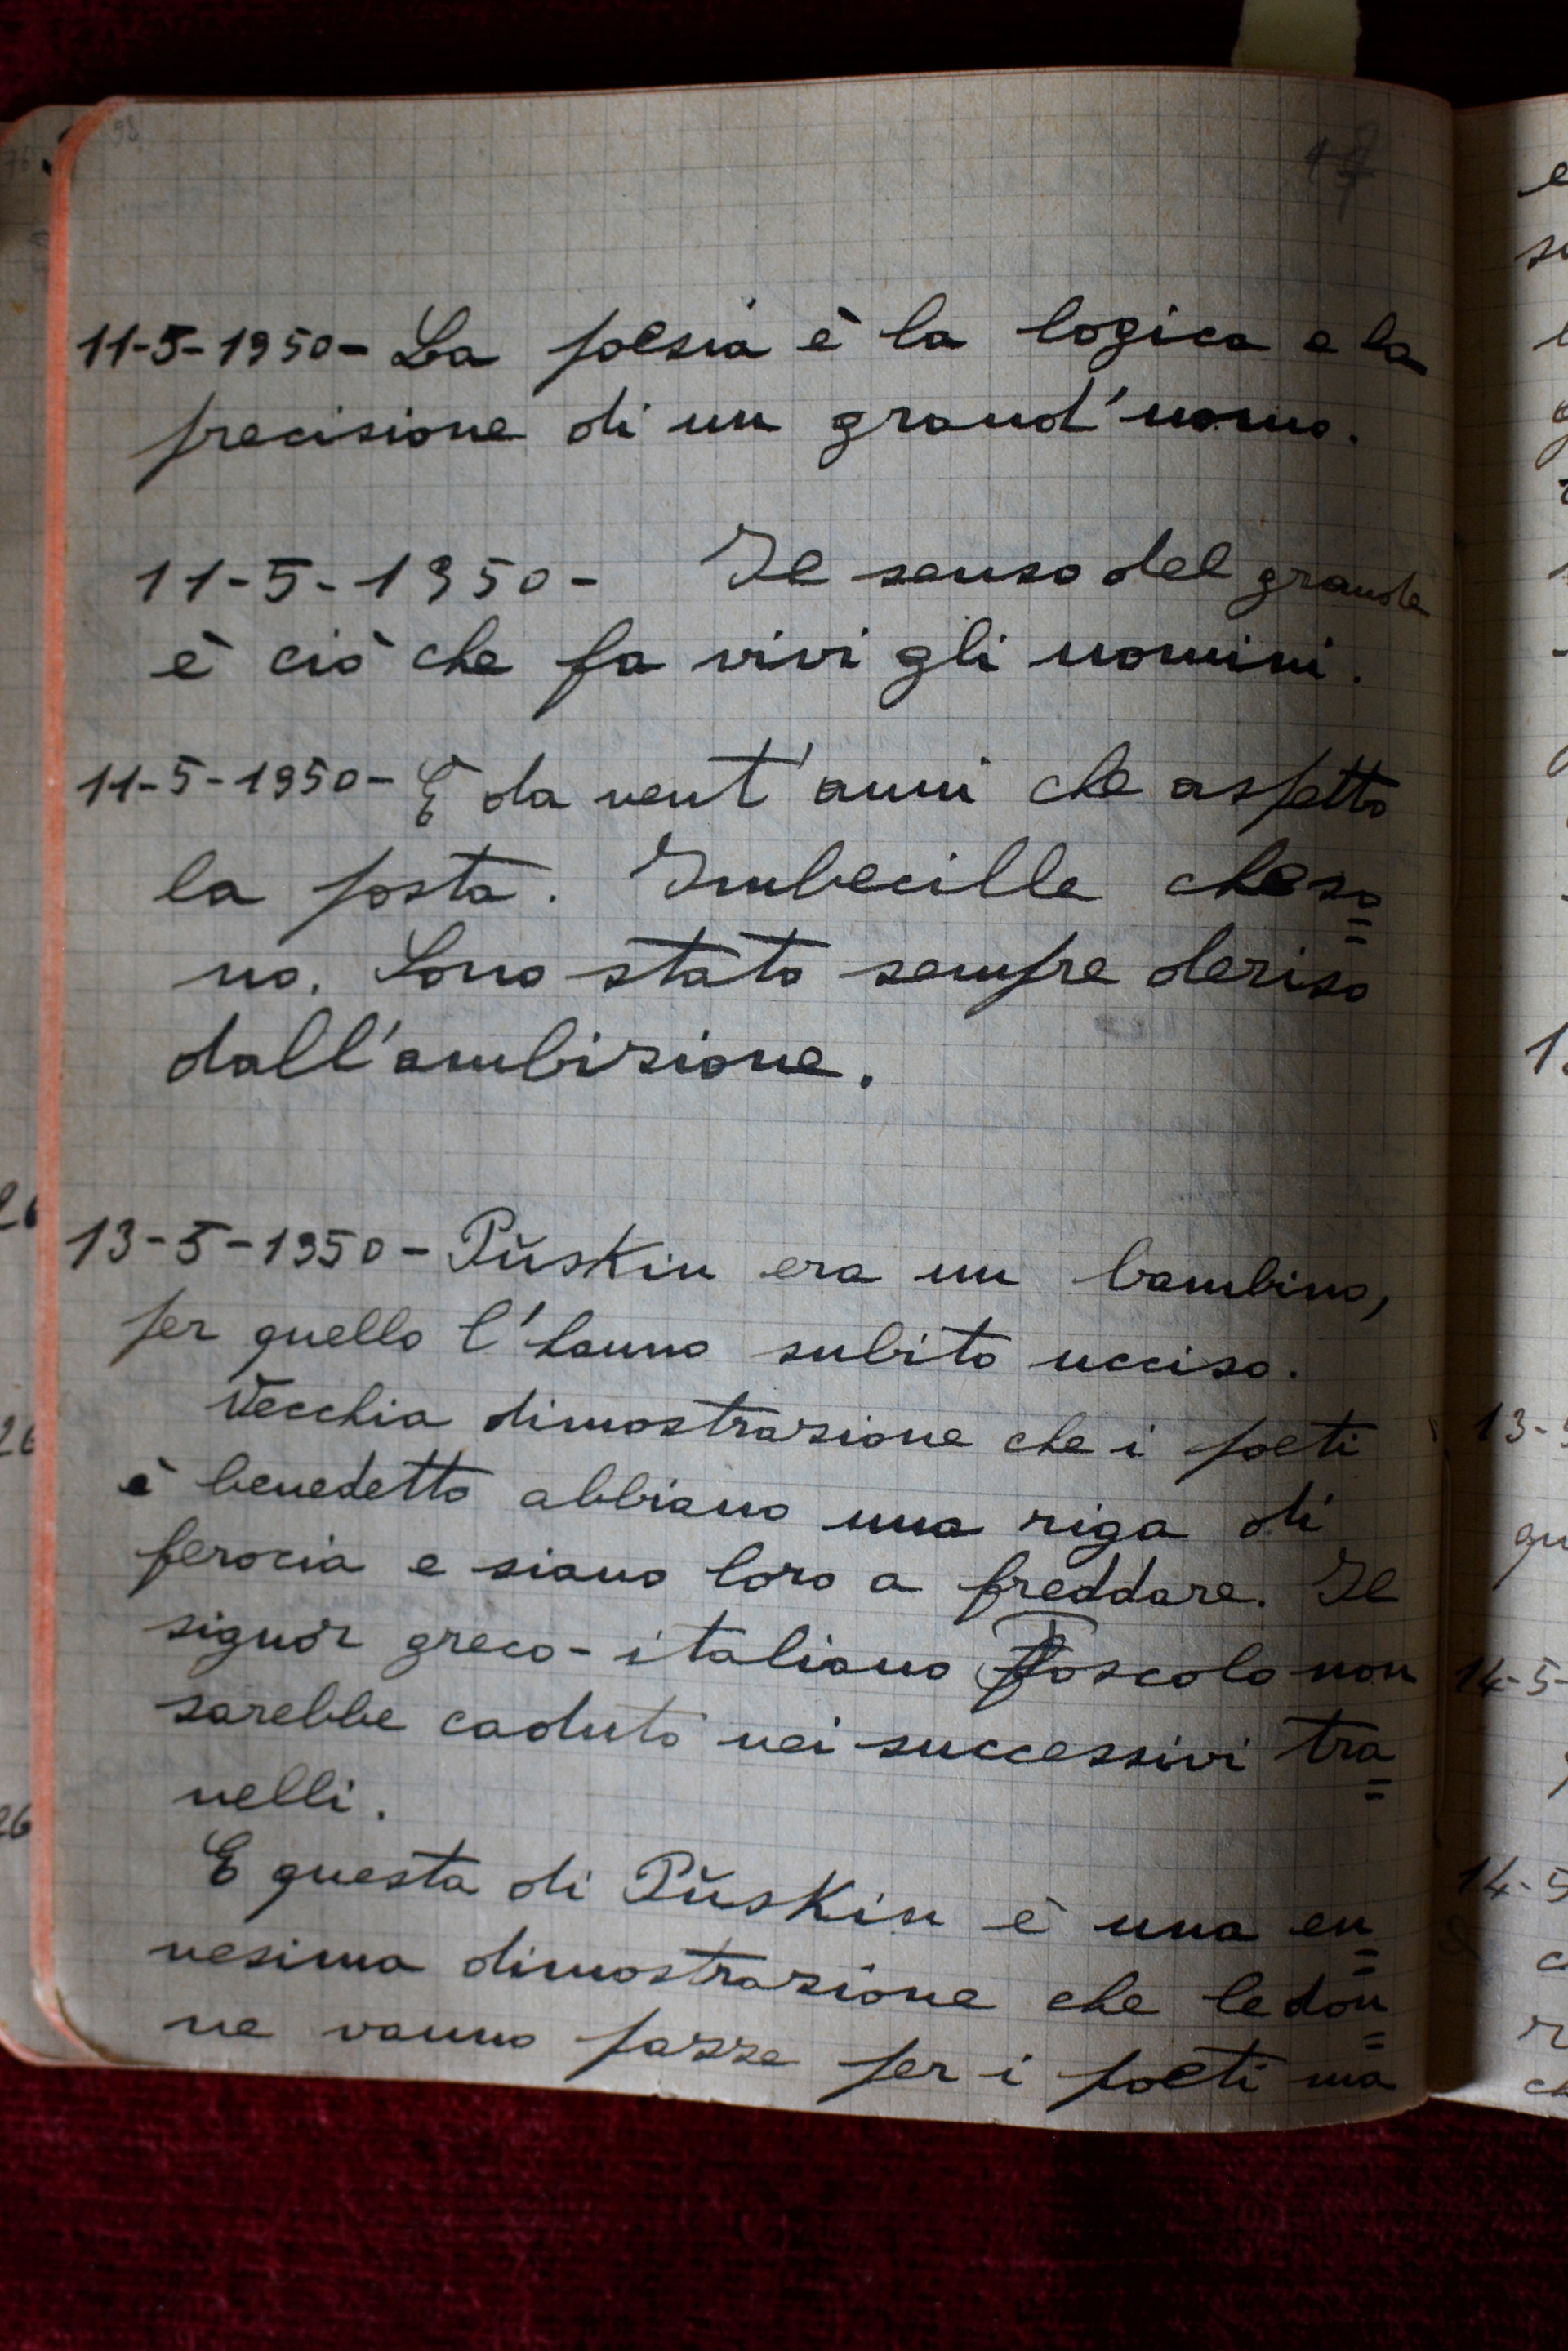 98
11-5-1950- La poesia è la logica e la
precisione di un grand'uomo.
11-5-1950- Il senso del grande
è ciò che fa vivi gli uomini.
11-5-1950- E da vent'anni che aspetto
la posta. Imbecille che so=
no. Sono stato sempre deriso
dall'ambizione.
13-5-1950- Pŭskin era un bambino,
per quello l'hanno subito ucciso.
Vecchia dimostrazione che i poeti
è benedetto abbiano una riga di
ferocia e siano loro a freddare. Il
signor greco-italiano Foscolo non
sarebbe caduto nei successivi tra=
nelli.
E questa di Pŭskin è una en=
nesima dimostrazione che le don=
ne vanno pazze per i poeti ma
26
26
26
13-5
14-5-
14-5